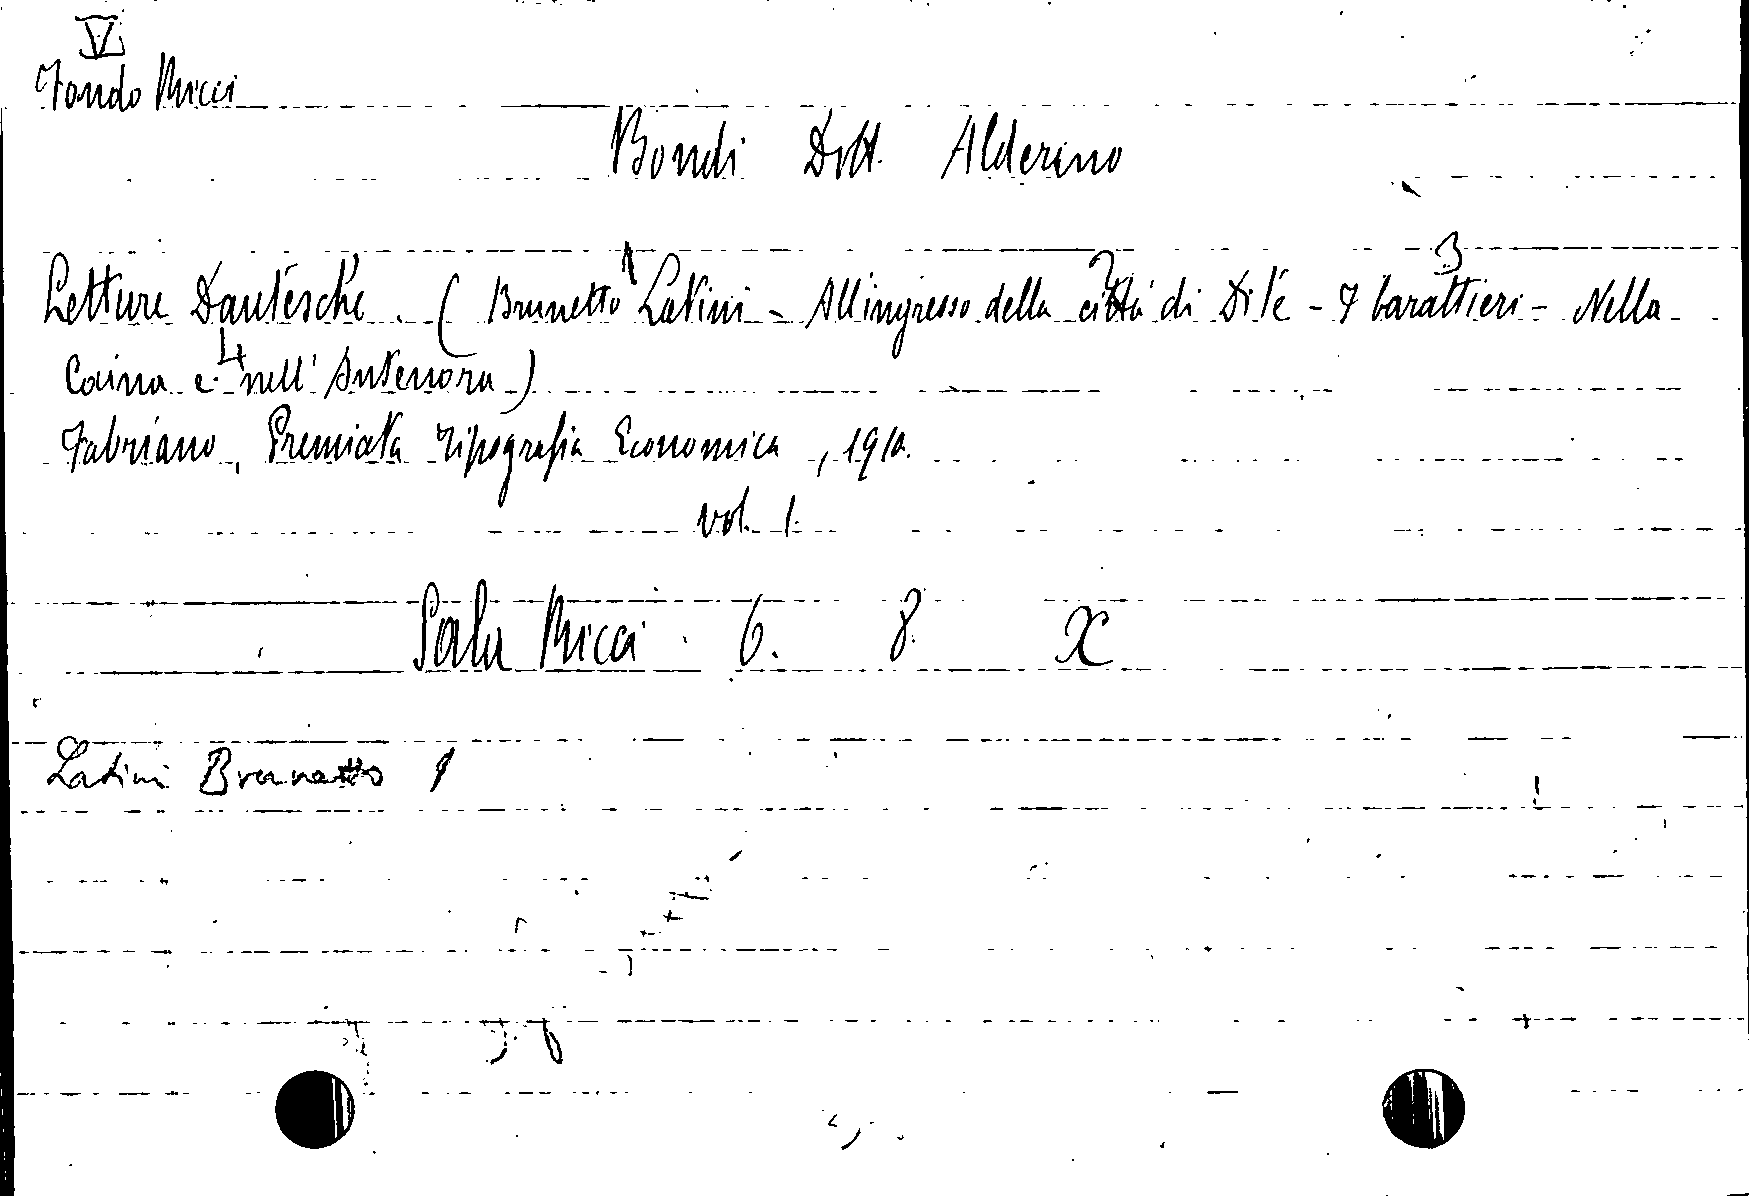 V
Fondo Ricci
Bondi Dott. Alderino
1 2 3
Letture Dantesche. (Brunetto Latini - All'ingresso della città di Dite - I barattieri - Nella
4
Caina e nell'Antenora)
Fabriano, Premiata Tipografia Economica, 1910.
vol. 1.
Sala Ricci. 6. 8. X
Latini Brunetto 1